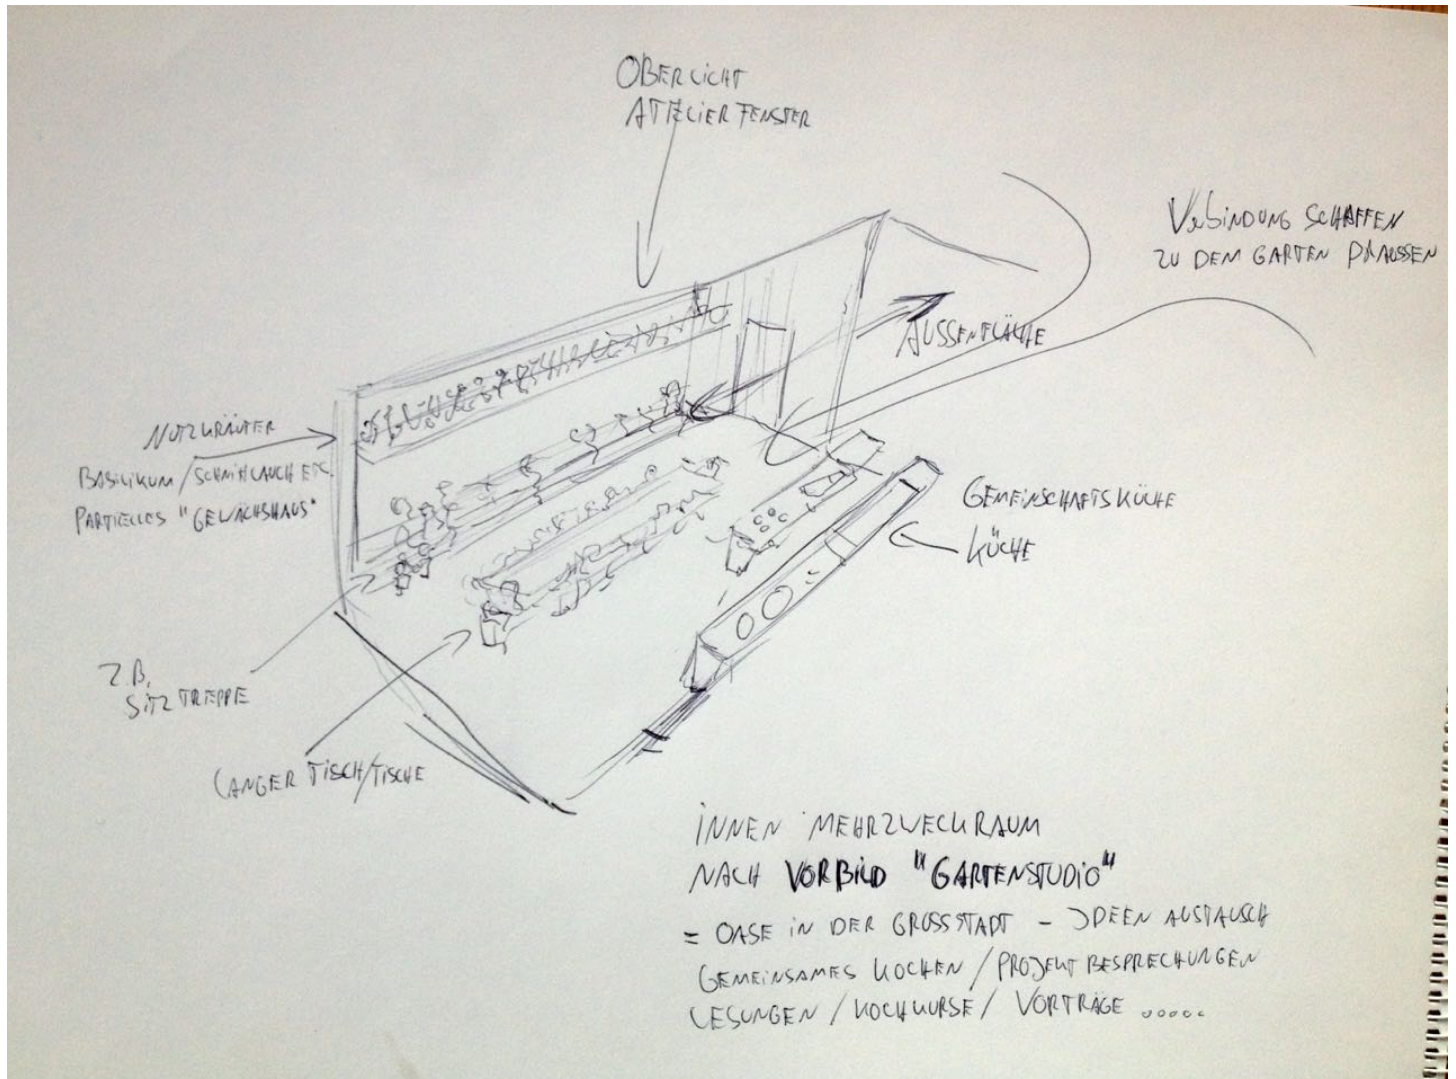 OBERLICHT
ATTELIER FENSTER
VERBINDUNG SCHAFFEN
ZU DEM GARTEN DRAUSSEN
AUSSENFLÄCHE
NUTZKRÄUTER
BASILIKUM / SCHNITTLAUCH ETC.
PARTIELLES "GEWÄCHSHAUS"
GEMEINSCHAFTSKÜCHE
KÜCHE
Z.B.
SITZTREPPE
LANGER TISCH/TISCHE
INNEN MEHRZWECKRAUM
NACH VORBILD "GARTENSTUDIO"
= OASE IN DER GROSSSTADT - IDEEN AUSTAUSCH
GEMEINSAMES KOCHEN / PROJEKT BESPRECHUNGEN
LESUNGEN / KOCHKURSE / VORTRÄGE .....